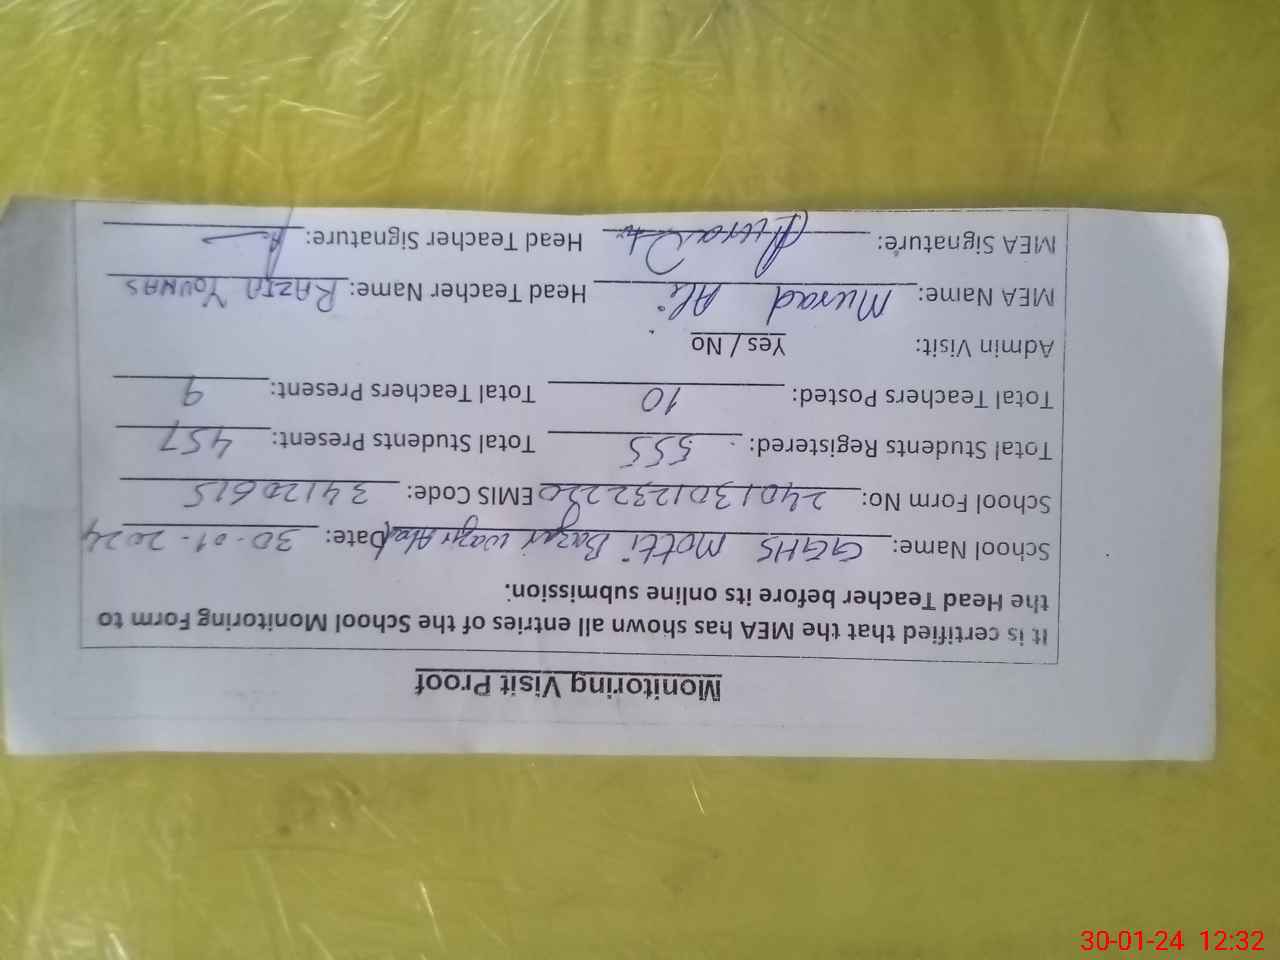 Monitoring Visit Proof
It is certified that the MEA has shown all entries of the School Monitoring Form to
the Head Teacher before its online submission.
School Name: GGHS Motti Bazar Wazir Abad Date: 30-01-2024
School Form No: 2401301232220 EMIS Code: 34120615
Total Students Registered: 555 Total Students Present: 457
Total Teachers Posted: 10 Total Teachers Present: 9
Admin Visit: Yes / No
MEA Name: Murad Ali Head Teacher Name: RAZIA YOUNAS
MEA Signature: Head Teacher Signature:
30-01-24 12:32